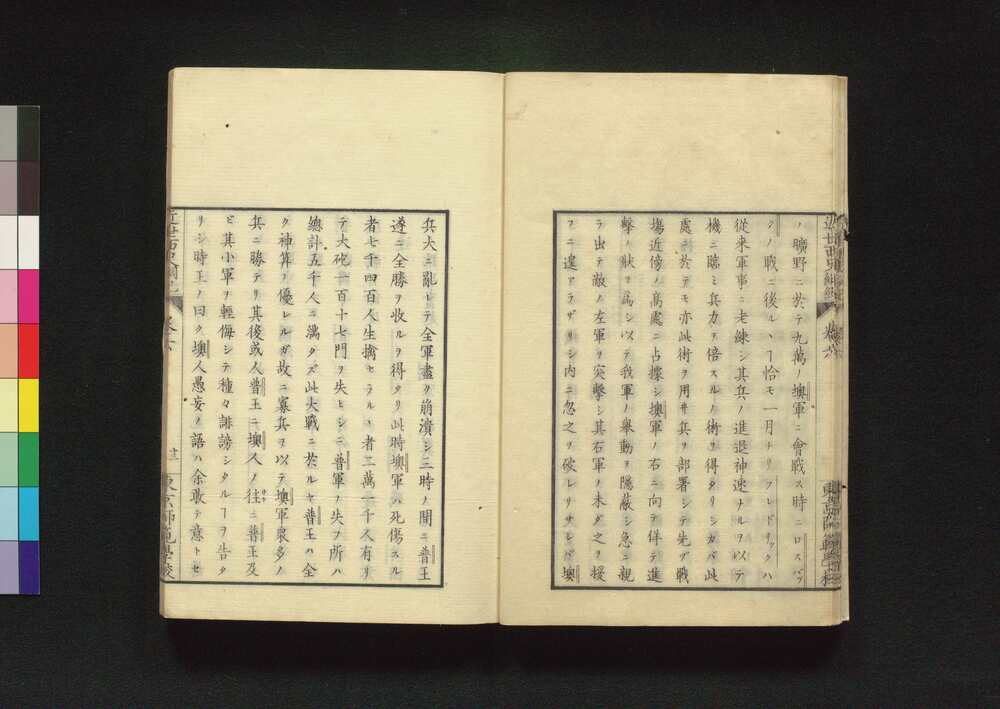 ノ曠野ニ於テ九萬ノ墺軍ニ會戰ス時ニロスバッ
クノ戰ニ後ルヿ恰モ一月ナリフレドリックハ
從来軍事ニ老練シ其兵ノ進退神速ナルヲ以テ
機ニ臨ミ兵力ヲ倍スルノ術ヲ得タリシガバ此
處ニ於テモ亦此術ヲ用ヰ兵ヲ部署シテ先ヅ戰
塲近傍ノ髙處ニ占據シ墺軍ノ右ニ向テ佯テ進
擊ノ狀ヲ爲シ以テ我軍ノ舉動ヲ隱蔽シ急ニ親
ラ出テ敵ノ左軍ヲ突擊シ其右軍ノ未ダ之ヲ援
フニ遑アラザリシ内ニ忽之ヲ破レリサレバ墺
兵大ニ亂レテ全軍盡ク崩潰シ三時ノ間ニ普王
遂ニ全勝ヲ收ルヲ得タリ此時墺軍ハ死傷スル
者七千四百人生擒セラルヽ者二萬一千人有リ
テ大砲一百十七門ヲ失ヒシニ普軍ノ失フ所ハ
總計五千人ニ満タズ此大戰ニ於ルヤ普王ハ全
ク神算ノ優レルガ故ニ寡兵ヲ以テ墺軍衆多ノ
兵ニ勝テリ其後或人普王ニ墺人ノ往ニ普王及
ビ其小軍ヲ輕侮シテ種々誹謗シタルヿヲ告タ
リシ時王ノ曰ク墺人愚妄ノ語ハ余敢テ意トセ
卷六
卷六
十三
東京師範學校